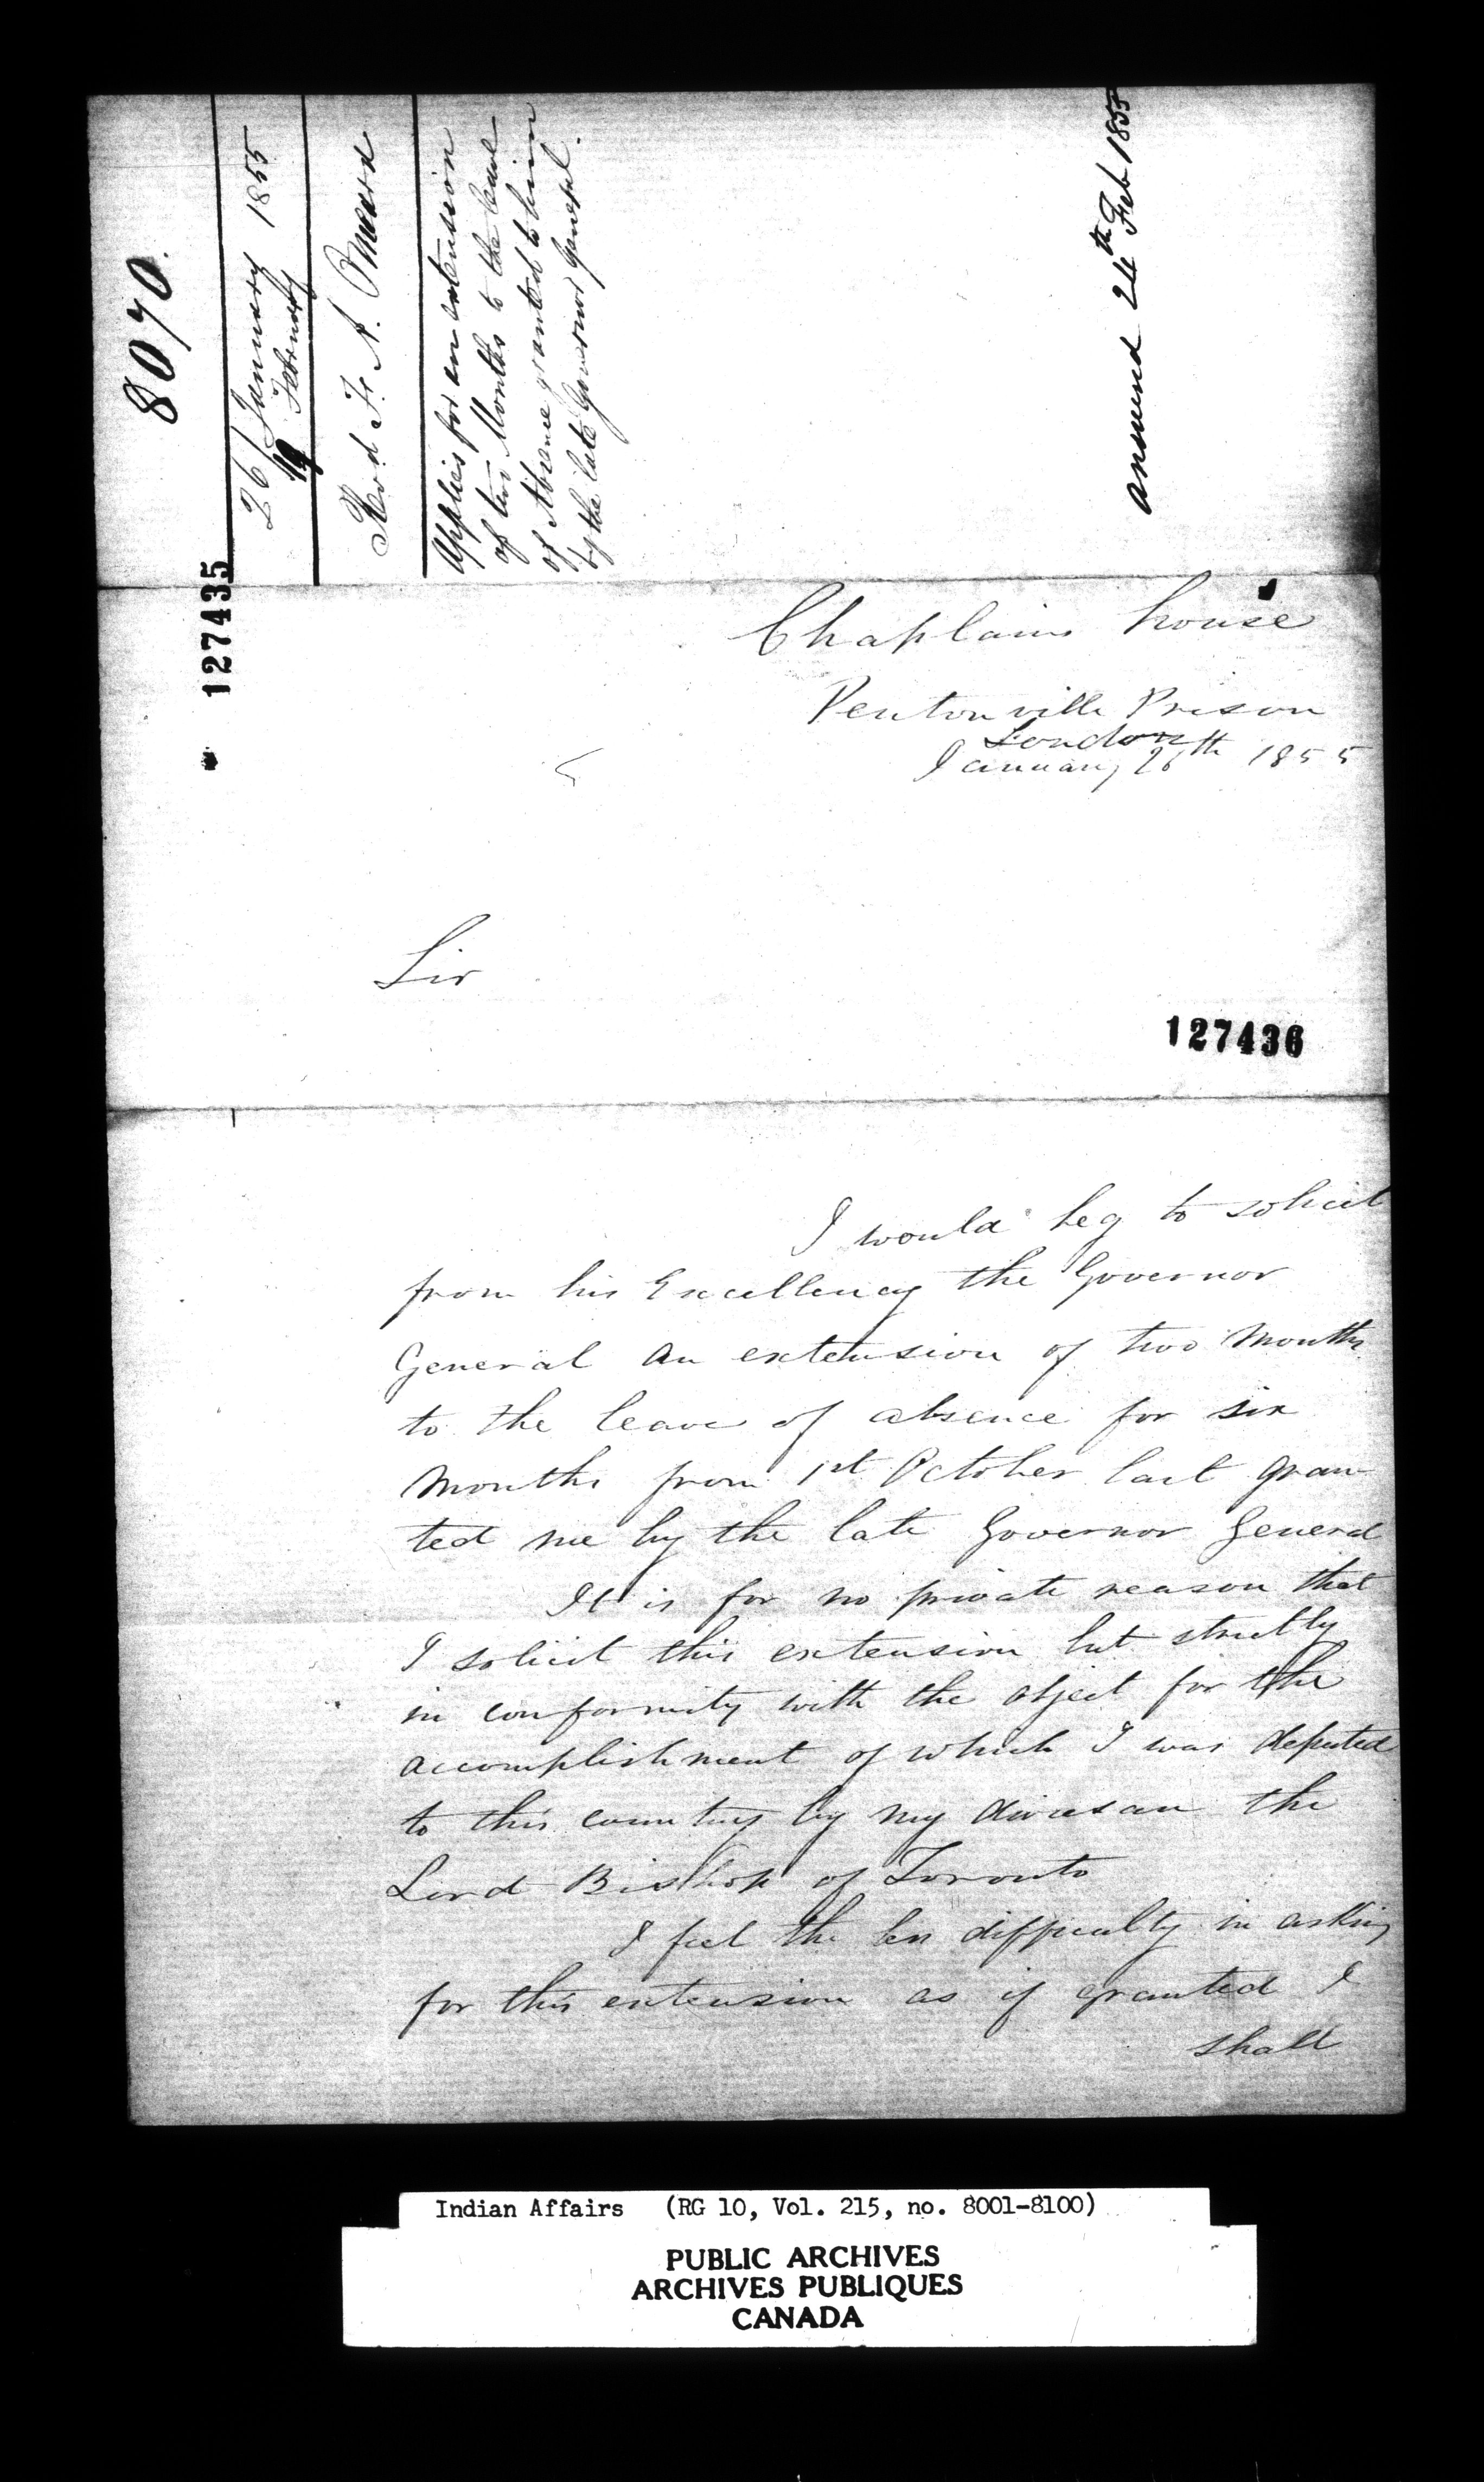 8070.
26 January 1855
19 February
Revd F. A. Omeara
Applies for an extension
of two Months to the leave
of Absence granted to him
by the late Governor General.
answered 24th Feb 1855
127435
Chaplains house
Pentonville Prison
London
January 26th 1855
Sir
127436
I would beg to solicit
from his Excellency the Governor
General an extension of two Months
to the leave of absence for six
Months from 1st October last gran
ted me by the late Governor General
It is for no private reason that
I solicit this extension but strictly
in conformity with the object for the
accomplishment of which I was deputed
to this country by my diocesan the
Lord Bishop of Toronto
I feel the less difficulty in asking
for this extension as if granted I
shall
Indian Affairs (RG 10, Vol. 215, no. 8001-8100)
PUBLIC ARCHIVES
ARCHIVES PUBLIQUES
CANADA